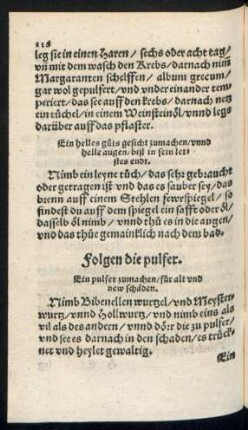 118
leg sie in einen Haren / sechs oder acht tag /
vñ mit dem wasch den Krebs / darnach nim̃
Margaranten schelffen / album grecum /
gar wol gepulfert / vnd vnder einander tem⸗
periert / das see auff den krebs / darnach netz
ein tüchel / in einem Weinsteinöl / vnnd legs
darüber auff das pflaster.
Ein helles gůts gesicht zumachen / vnnd
helle augen / biß in sein let⸗
stes endt.
Nimb ein leyne tůch / das sehr gebraucht
oder getragen ist vnd das es sauber sey / das
brenn auff einem Stehlen fewrspiegel / so
findest du auff dem spiegel ein safft oder öl /
dasselb öl nimb / vnnd thů es in die augen /
vnd das thůe gemainklich nach dem bad.
Folgen die pulfer.
Ein pulfer zumachen / für alt vnd
new schäden.
Nimb Bibenellen wurtzel / vnd Meyster⸗
wurtz / vnnd Hollwurtz / vnd nimb eins als
vil als des andern / vnnd dörr die zu pulfer /
vnd see es darnach in den schaden / es trück⸗
net vnd heylet gewaltig.
Ein